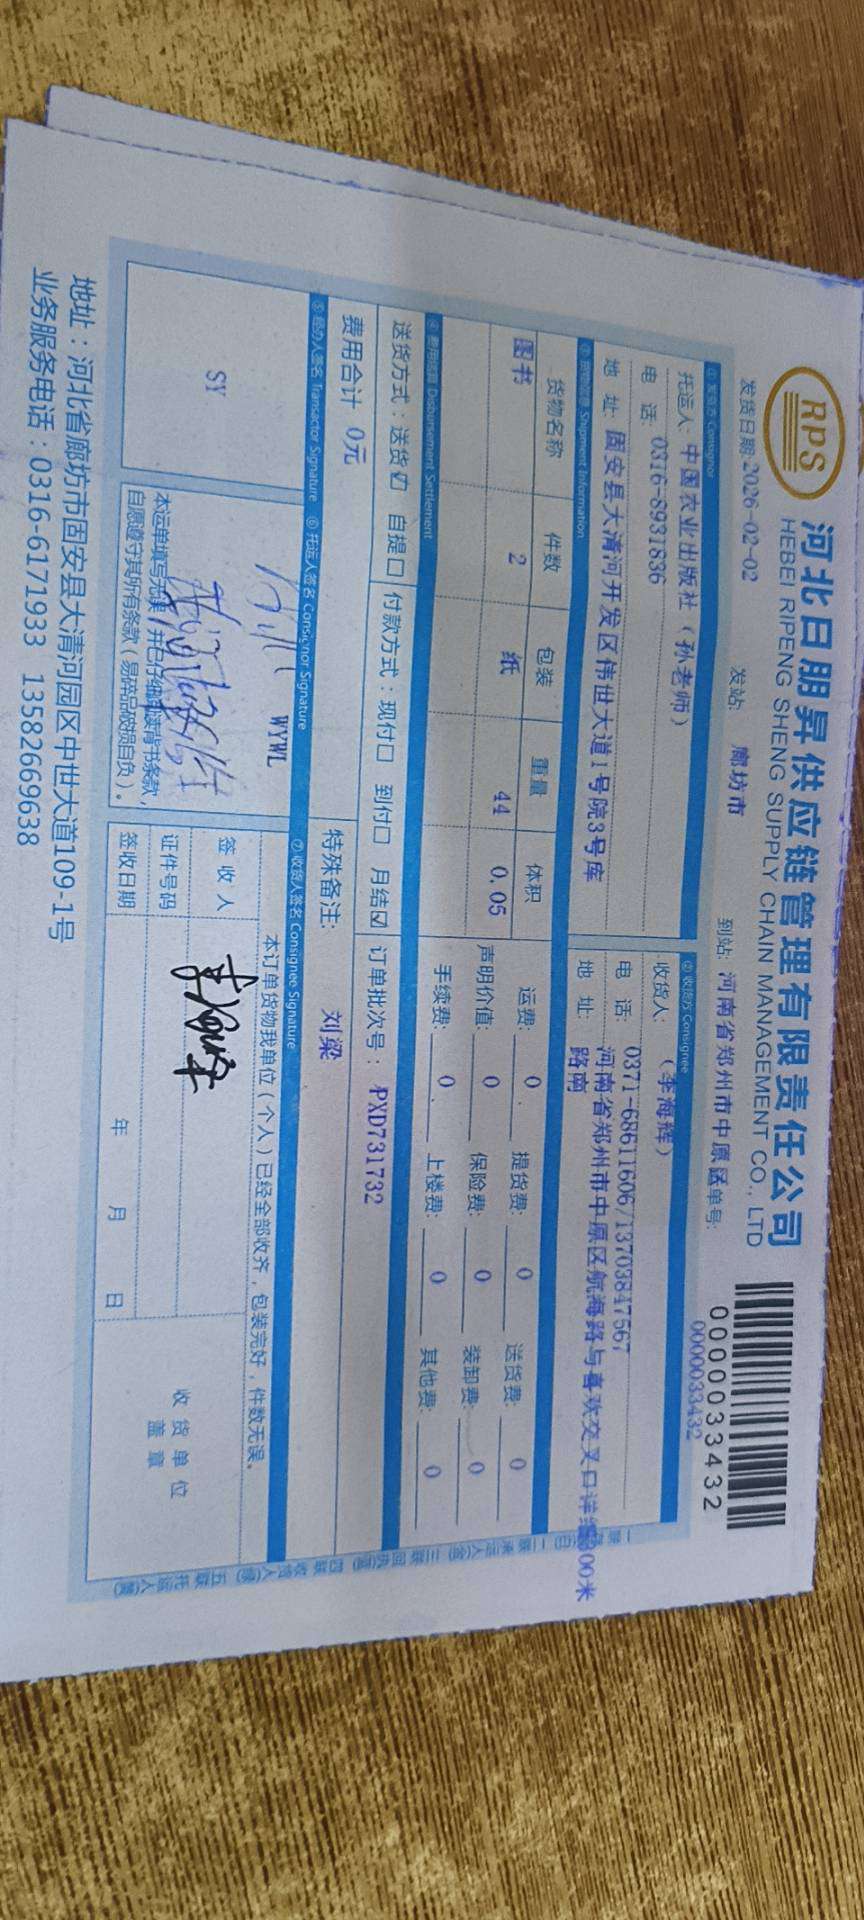 RPS
河北日朋昇供应链管理有限责任公司
HEBEI RIPENG SHENG SUPPLY CHAIN MANAGEMENT CO., LTD
0000033432
发货日期:2026-02-02 发站: 廊坊市 到站: 河南省郑州市中原区 单号: 0000033432
① 发货方 Consignor ② 收货方 Consignee
托运人: 中国农业出版社（孙老师） 收货人: （李海辉）
电 话: 0316-8931836 电 话: 0371-68611606/13703847567
地 址: 固安县大清河开发区伟世大道1号院3号库 地 址: 河南省郑州市中原区航海路与喜欢交叉口详细300米
路南
③ 货物信息 Shipment Information
货物名称 件数 包装 重量 体积 运费: 0 提货费: 0 送货费: 0
图书 2 纸 44 0.05 声明价值: 0 保险费: 0 装卸费: 0
手续费: 0 上楼费: 0 其他费: 0
④ 费用结算 Disbursement Settlement
送货方式：送货☑ 自提☐ 付款方式：现付☐ 到付☐ 月结☑ 订单批次号： PXD731732
费用合计 0元 特殊备注: 刘梁
⑤ 经办人签名 Transactor Signature ⑥ 托运人签名 Consignor Signature ⑦ 收货人签名 Consignee Signature
SY
WYWL
本运单填写无误，并已仔细阅读背书条款，
自愿遵守其所有条款（易碎品破损自负）。
本订单货物我单位（个人）已经全部收齐，包装完好，件数无误。
签 收 人
证件号码
签收日期 年 月 日
收 货 单 位
盖 章
地址：河北省廊坊市固安县大清河园区中世大道109-1号
业务服务电话：0316-6171933 13582669638